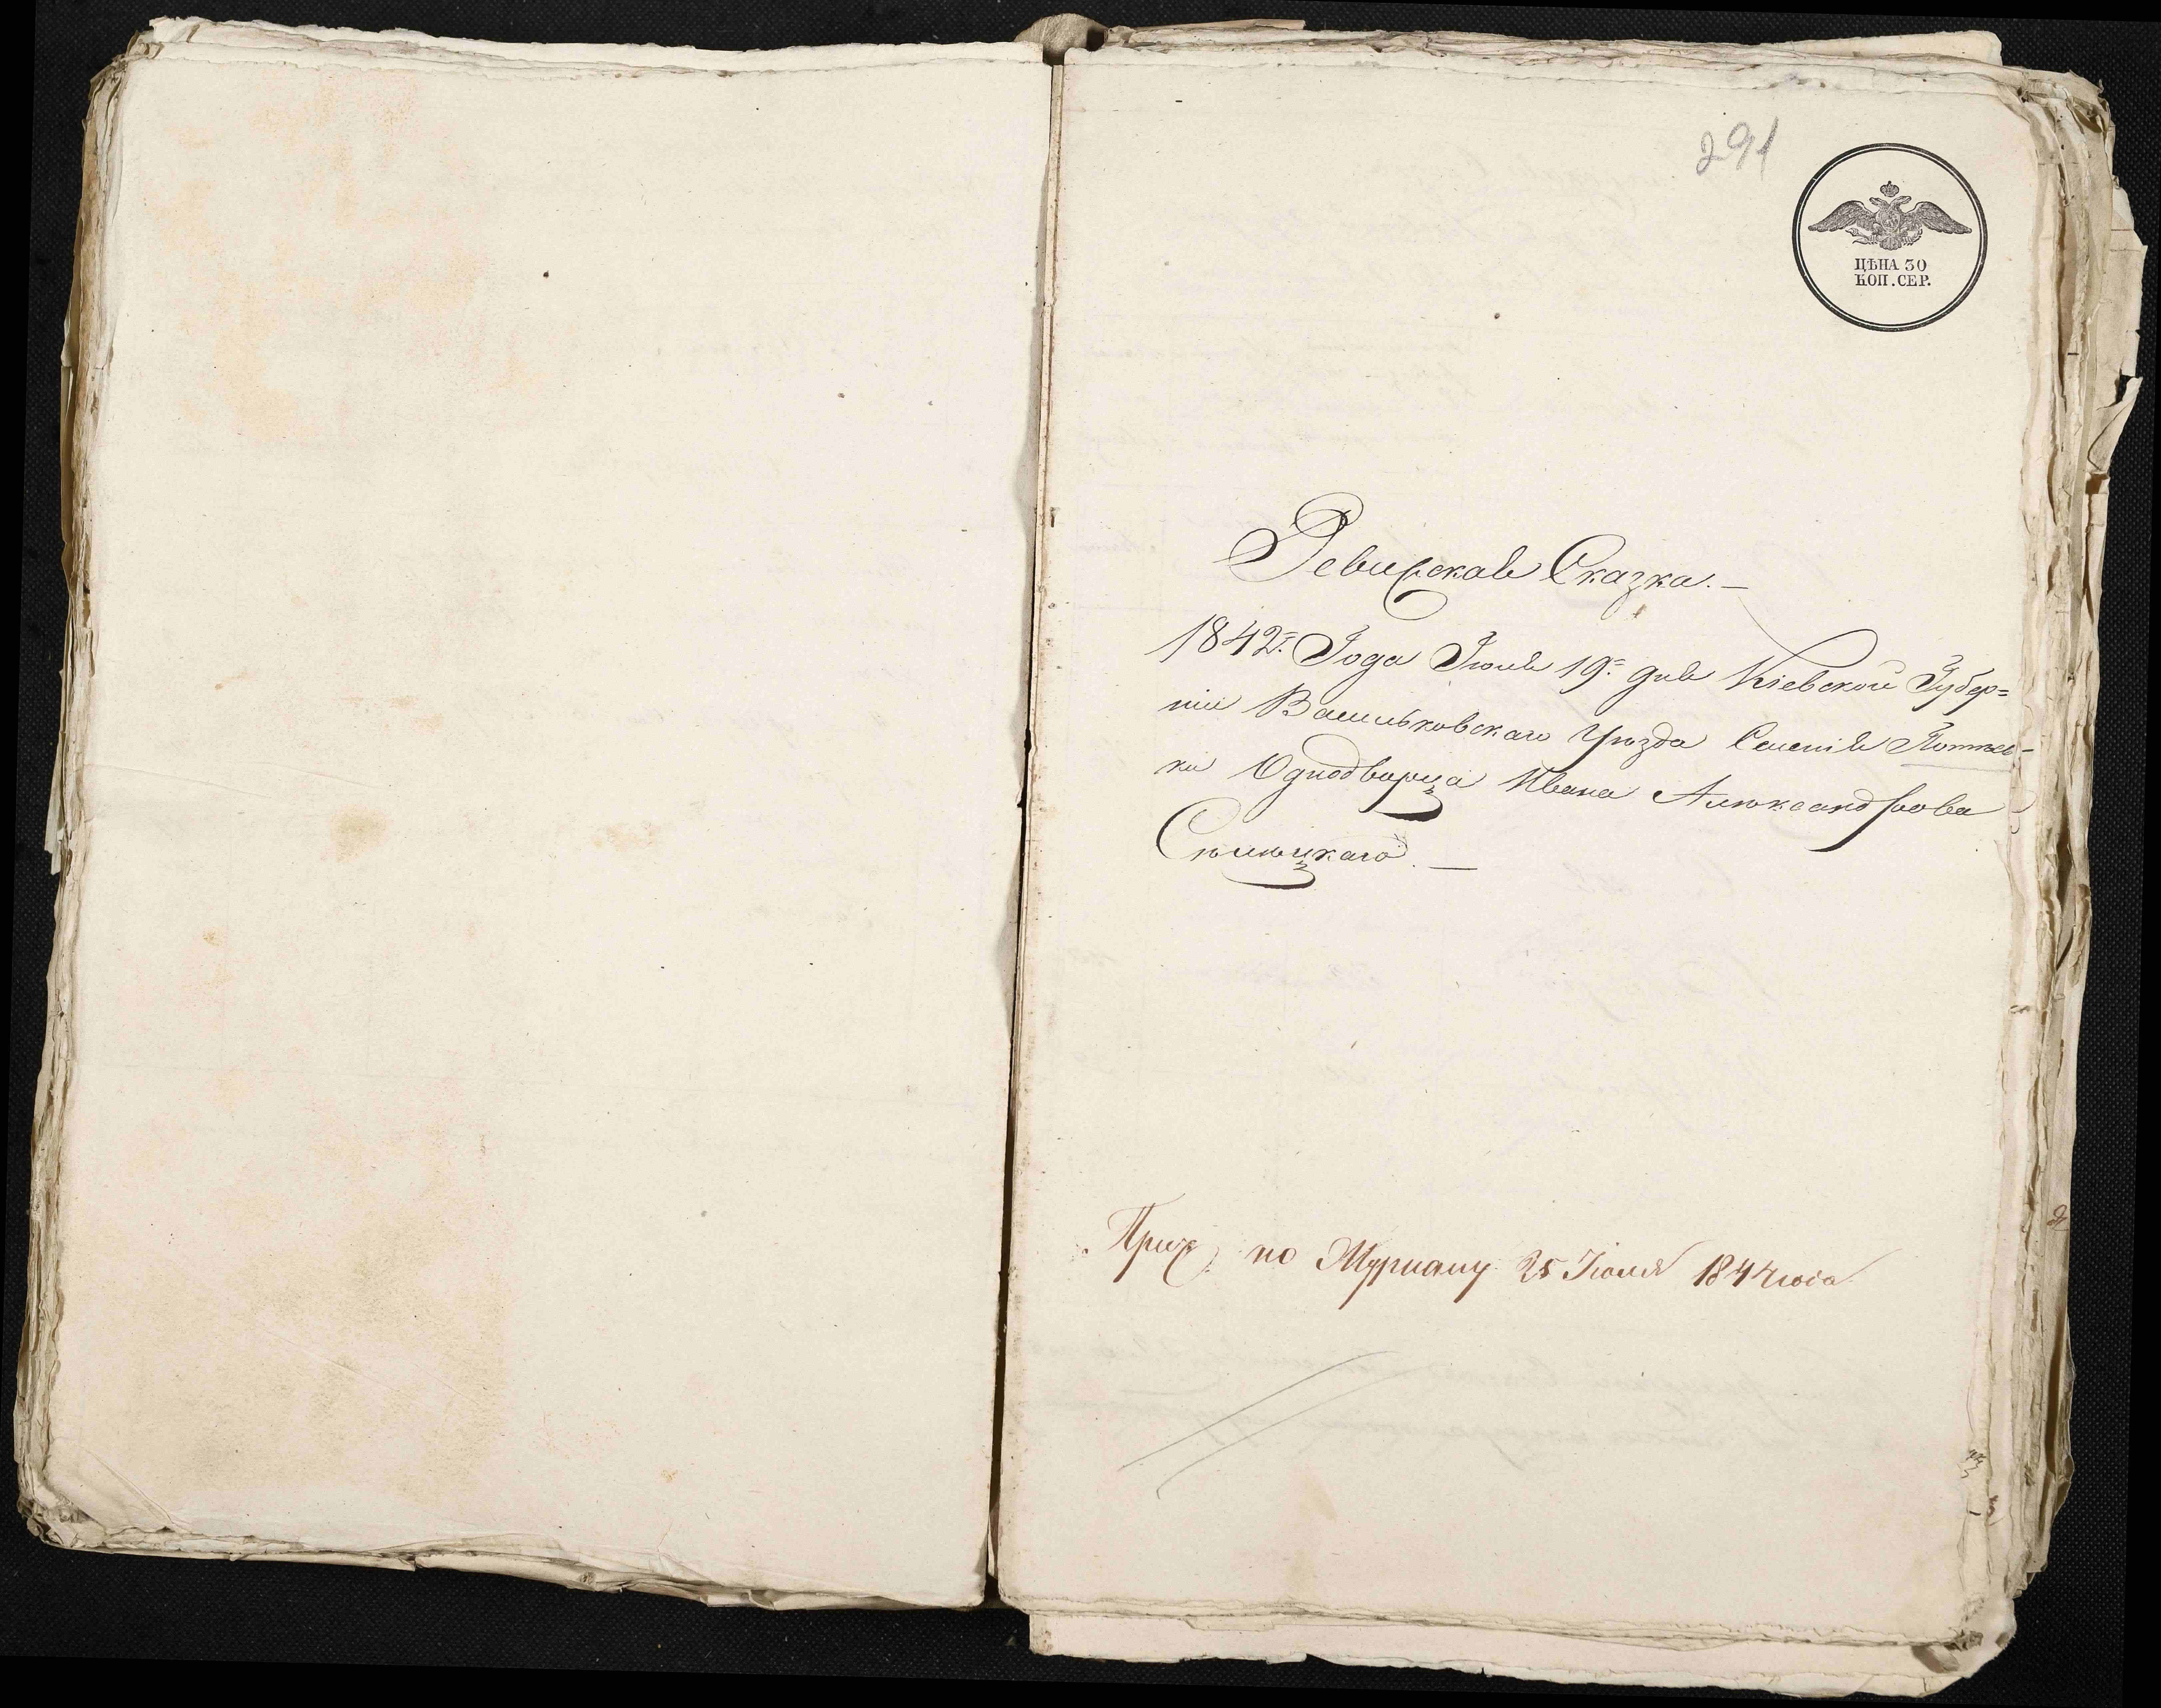 291
ЦѢНА 30
КОП. СЕР.
Ревизская Сказка. —
1842. Года Іюля 19. дня Кіевской Губер=
ніи Васильковскаго Уѣзда Селенія
ки Однодворца Ивана Александрова
по Журналу 25 Іюля 1844 года